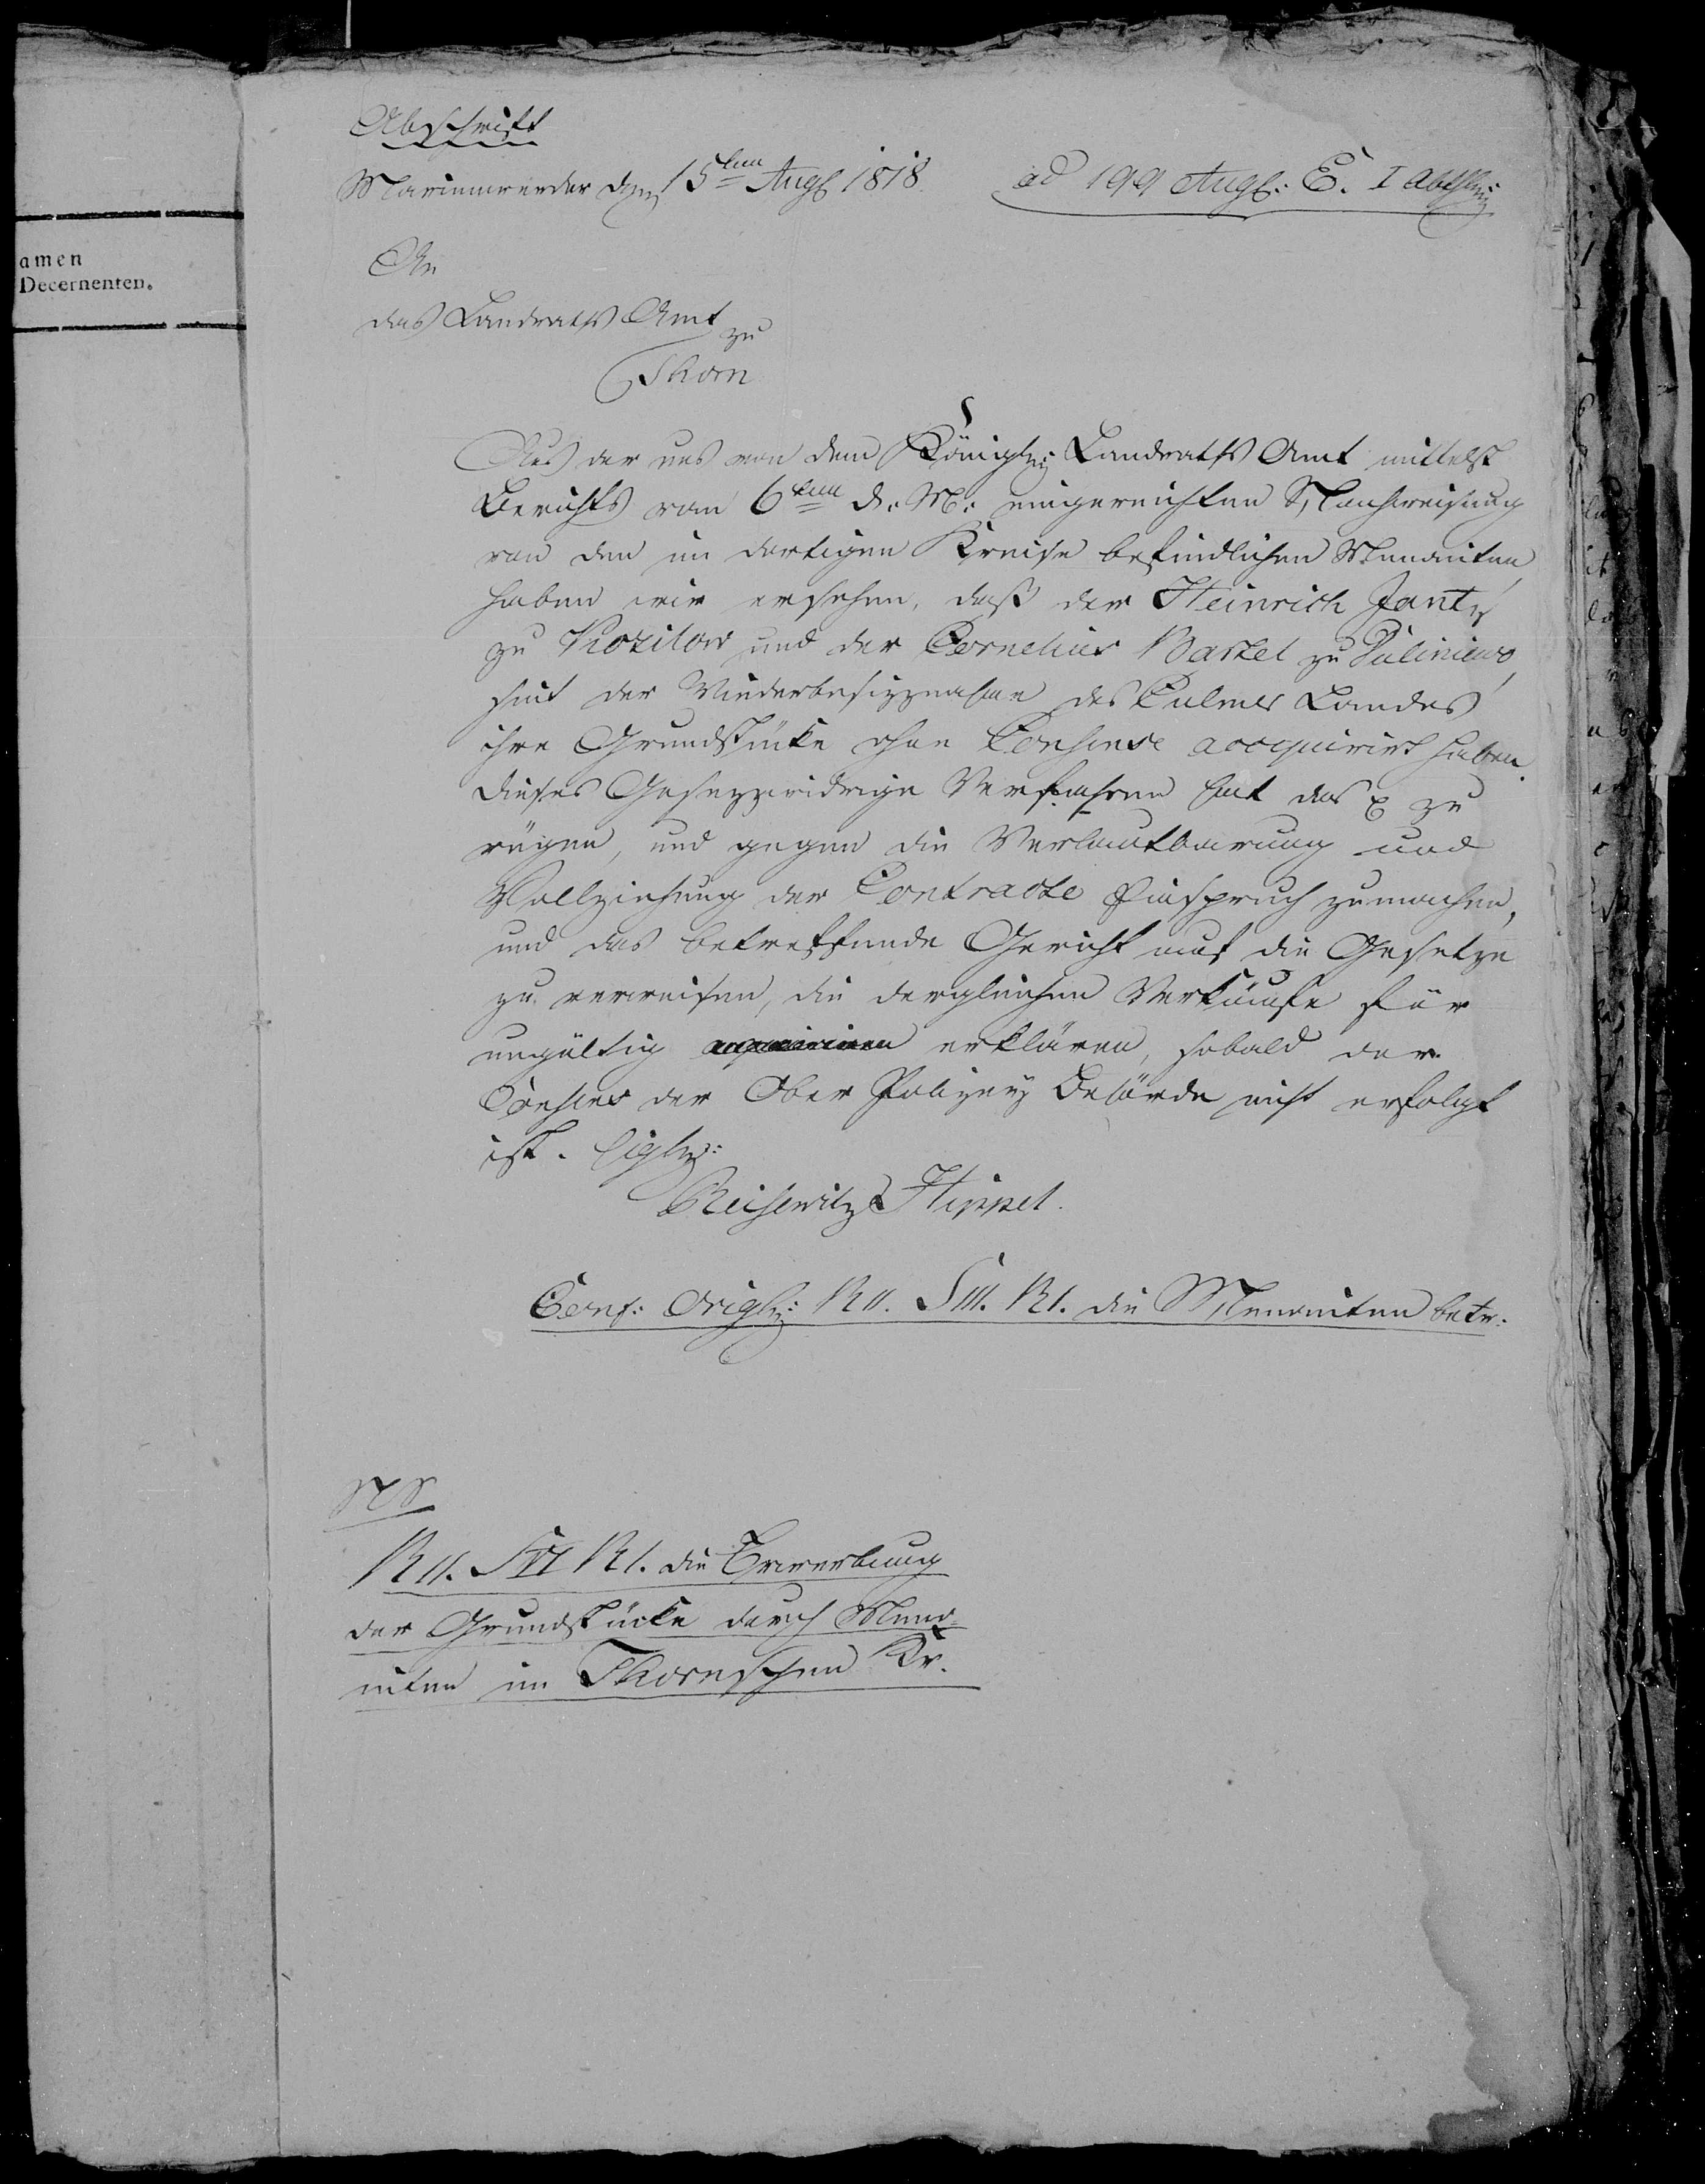 amen
Decernenten.
Abschrift
Marienwerder den 15ten Augs 1818.
ad 199 Augs: E. I Abthlg:
An
das Landraths Amt zu
Thorn
Aus der uns von dem Königl. Landraths Amt mittelst
Berichts vom 6ten d. M. eingereichten Nachweisung
von den im dortigen Kreise befindlichen Menoniten
haben wir ersehen, daß der Heinrich Jantz
zu Kozilow und der Cornelius Bartel zu
seit der Wiederbesizznahme des Culmer Landes
ihre Grundstücke ohne Consense acquirirt haben.
Dieses Gesezzwidrige Verfahren hat das p zu
rügen, und gegen die Verlautbarung und
Vollziehung der Contracte Einspruch zu machen,
und das betreffende Gericht auf die Gesetze
zu verweisen, die dergleichen Verkäufe für
ungültig erklären, sobald der
Consens der Ober Polizey Behörde nicht erfolgt
ist.
Reisewitz Hippel.
Conf: Origl: R II. S III. R I. die Menoniten betr.
R II. S R I. die Erwerbung
der Grundstücke durch Meno-
niten im Thornschen Kr.